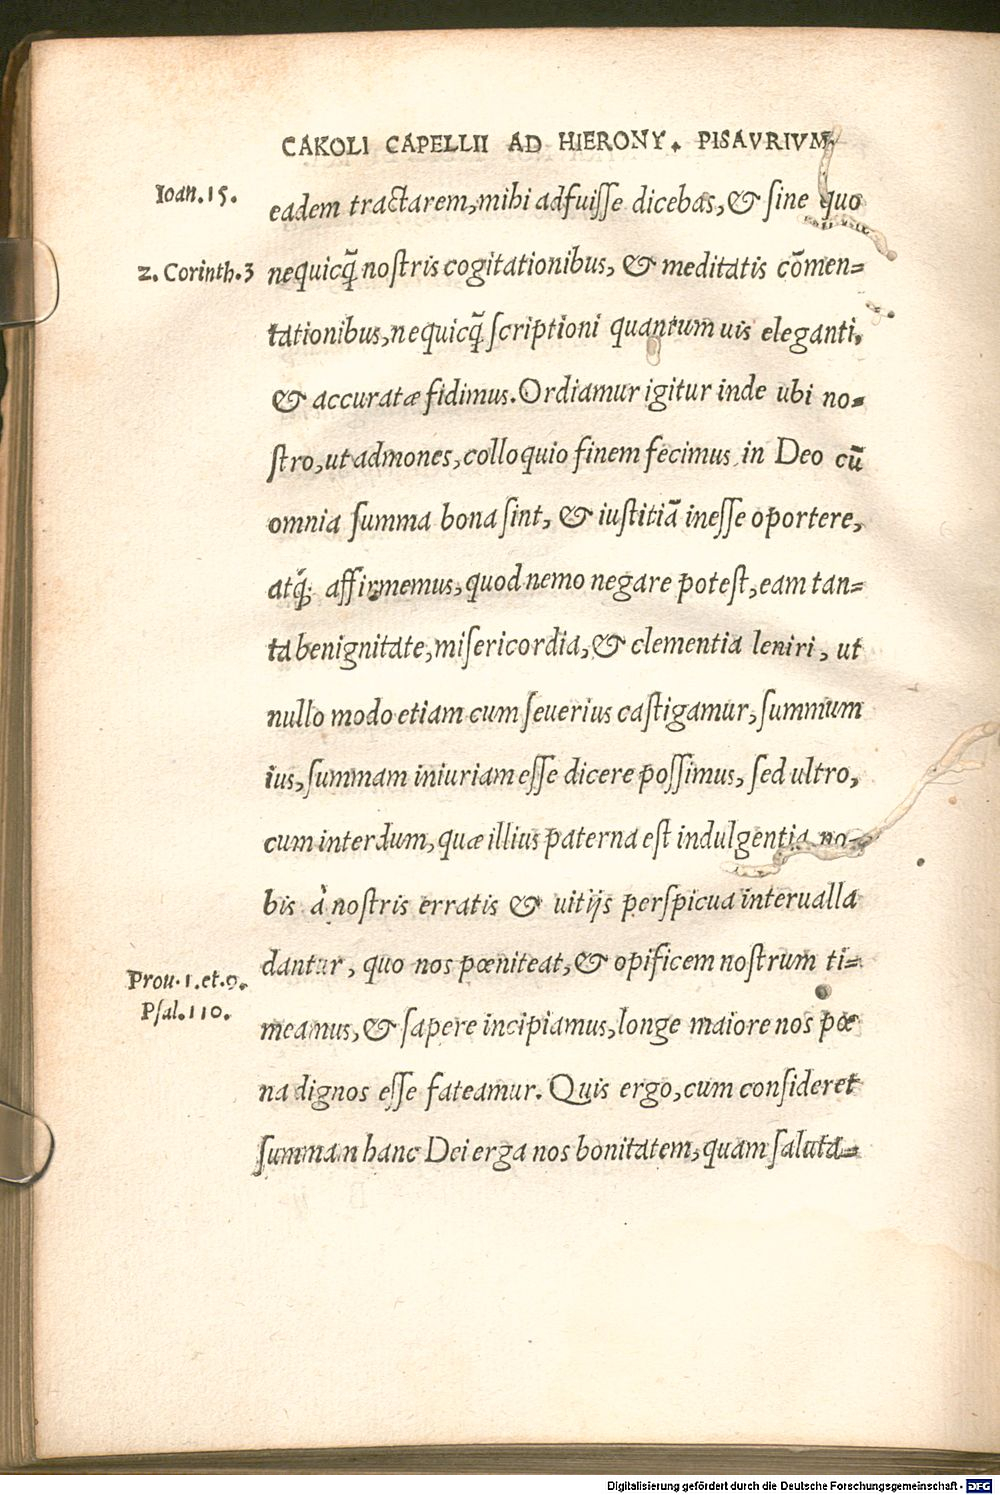 CAKOLI CAPELLII AD HIERONY. PISAVRIVM
Ioan.15.
eadem tractarem,mihi adfuiſſe dicebas,& ſine quo
2. Corinth.3
nequicq̃ noſtris cogitationibus, & meditatis cõmen=
tationibus,nequicq̃ ſcriptioni quantum uis eleganti,
& accuratæ fidimus.Ordiamur igitur inde ubi no=
ſtro,ut admones,colloquio finem fecimus, in Deo cũ
omnia ſumma bona ſint, & iuſtitiã ineſſe oportere,
atq́; affirmemus,quod nemo negare poteſt,eam tan=
ta benignitate,miſericordia,& clementia leniri, ut
nullo modo etiam cum ſeuerius caſtigamur,ſummum
ius,ſummam iniuriam eſſe dicere poſſimus, ſed ultro,
cum interdum,quæ illius paterna eſt indulgentia no=
bis à noſtris erratis & uitijs perſpicua interualla
dantur, quo nos pœniteat,& opificem noſtrum ti=
Prou.1.et.9.
Pſal.110.
meamus,& ſapere incipiamus,longe maiore nos pœ
na dignos eſſe fateamur. Quis ergo,cum conſideret
ſumman hanc Dei erga nos bonitatem,quam ſaluta=
Digitalisierung gefördert durch die Deutsche Forschungsgemeinschaft - DFG